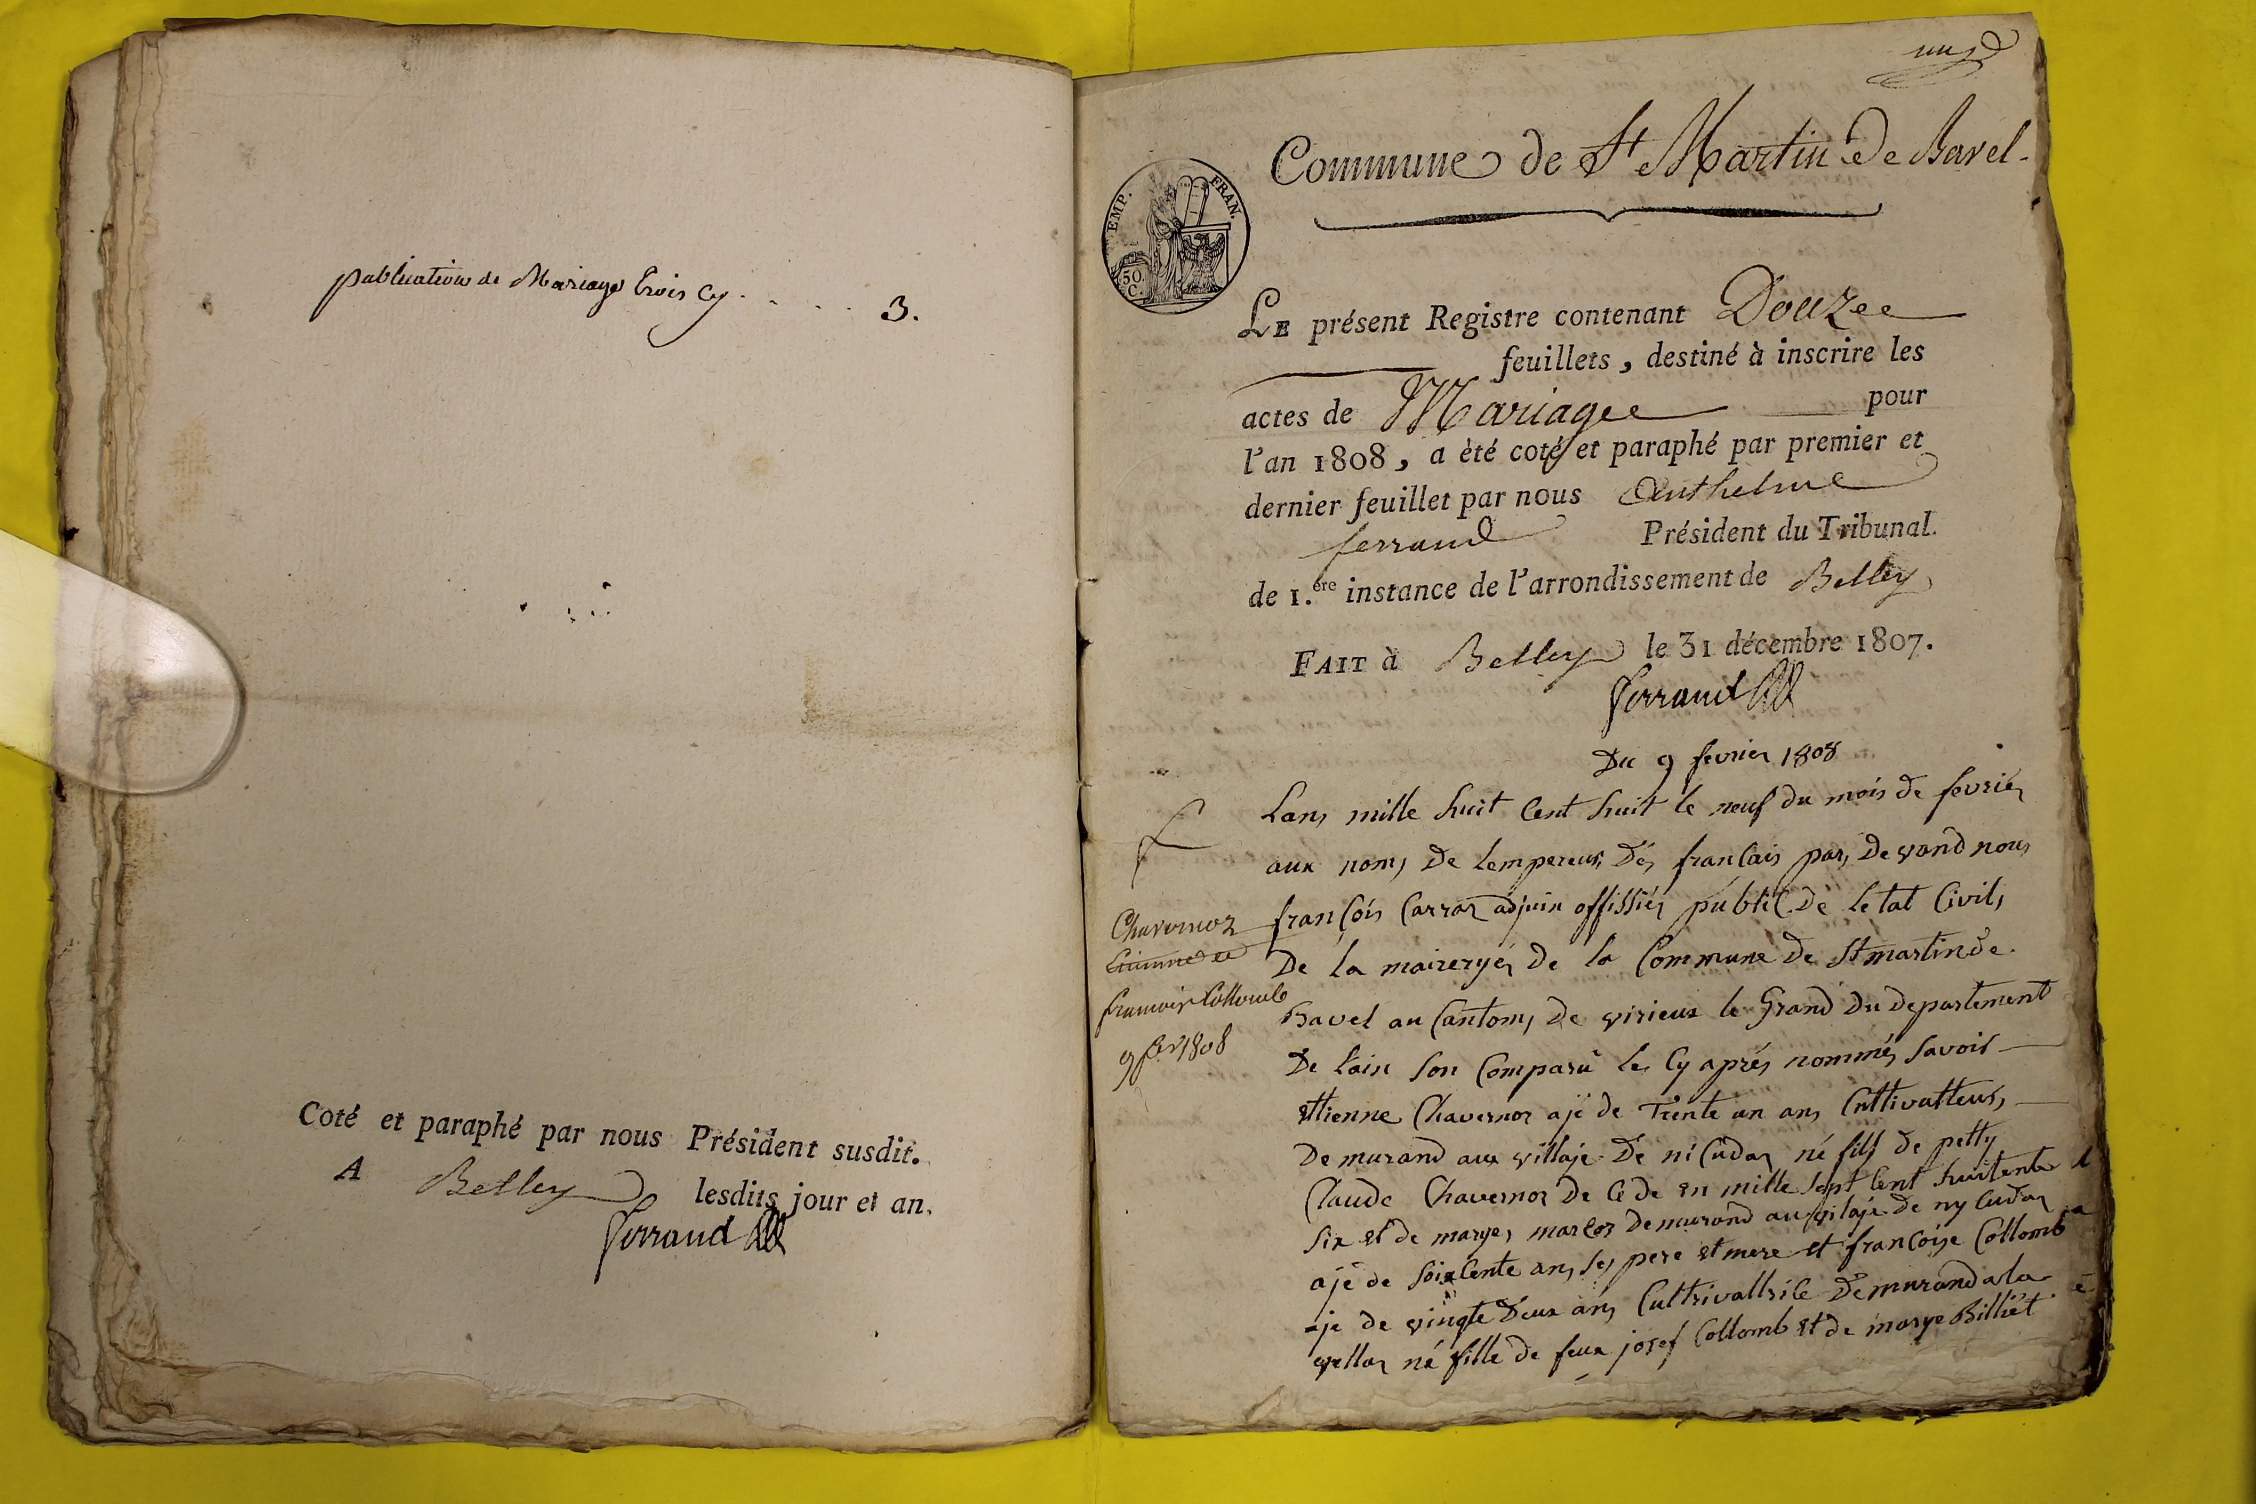 publication de Mariage trois cy . . . . . 3.
Coté et paraphé par nous Président susdit.
A Belley lesdits jour et an.
Ferrand
Commune de St Martin de Bavel.
EMP. FRAN.
50.
C.
LE présent Registre contenant Douze
feuillets, destiné à inscrire les
actes de Mariage pour
l'an 1808, a été coté et paraphé par premier et
dernier feuillet par nous Anthelme
ferrand Président du Tribunal.
de 1.ere instance de l'arrondissement de Belley
FAIT à Belley le 31 décembre 1807.
Ferrand
Du 9 fevrier 1808
Chavernoz
Etienne et
francoise Collomb
9 fer 1808
Lans mille huit Cent huit le neuf du mois de fevrier
aux noms De Lempereur Des francais par, De vand nous
francois Carraz adjuin offissier public De letat Civils
De la maireryes de la Commune De St martin de
Bavel au Cantom, De virieux le Grand Du Departement
De Lain Son Comparu les Cy aprés nommés Savoir
Ettienne Chavernoz ajé de Trente un ans Cultivatteur,
Demurand aux villaje De ni Cudaz né fils de petty
Claude Chavernoz De Cede en mille Sept Cent huitente
Six et de marye, marcoz Demurand au vilaje De ny Cudaz
ajé de Soixcente ans, Ses pere et mere et francoise Collomb
aje de vingte Deux ans Cultrivattrise Demurand a la
vellaz né fille de feux josef Collomb et de marye Billiet